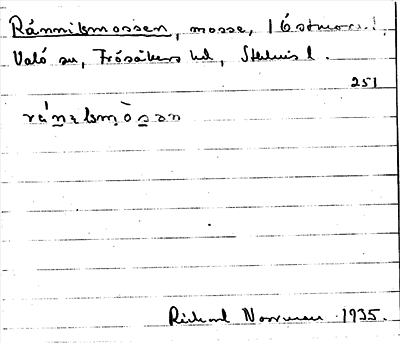 Rännilsmossen, mosse, 1 Östmora 1,
Valö sn, Frösåkers hd, Sthlms l.
251
Richard Norrman 1935.